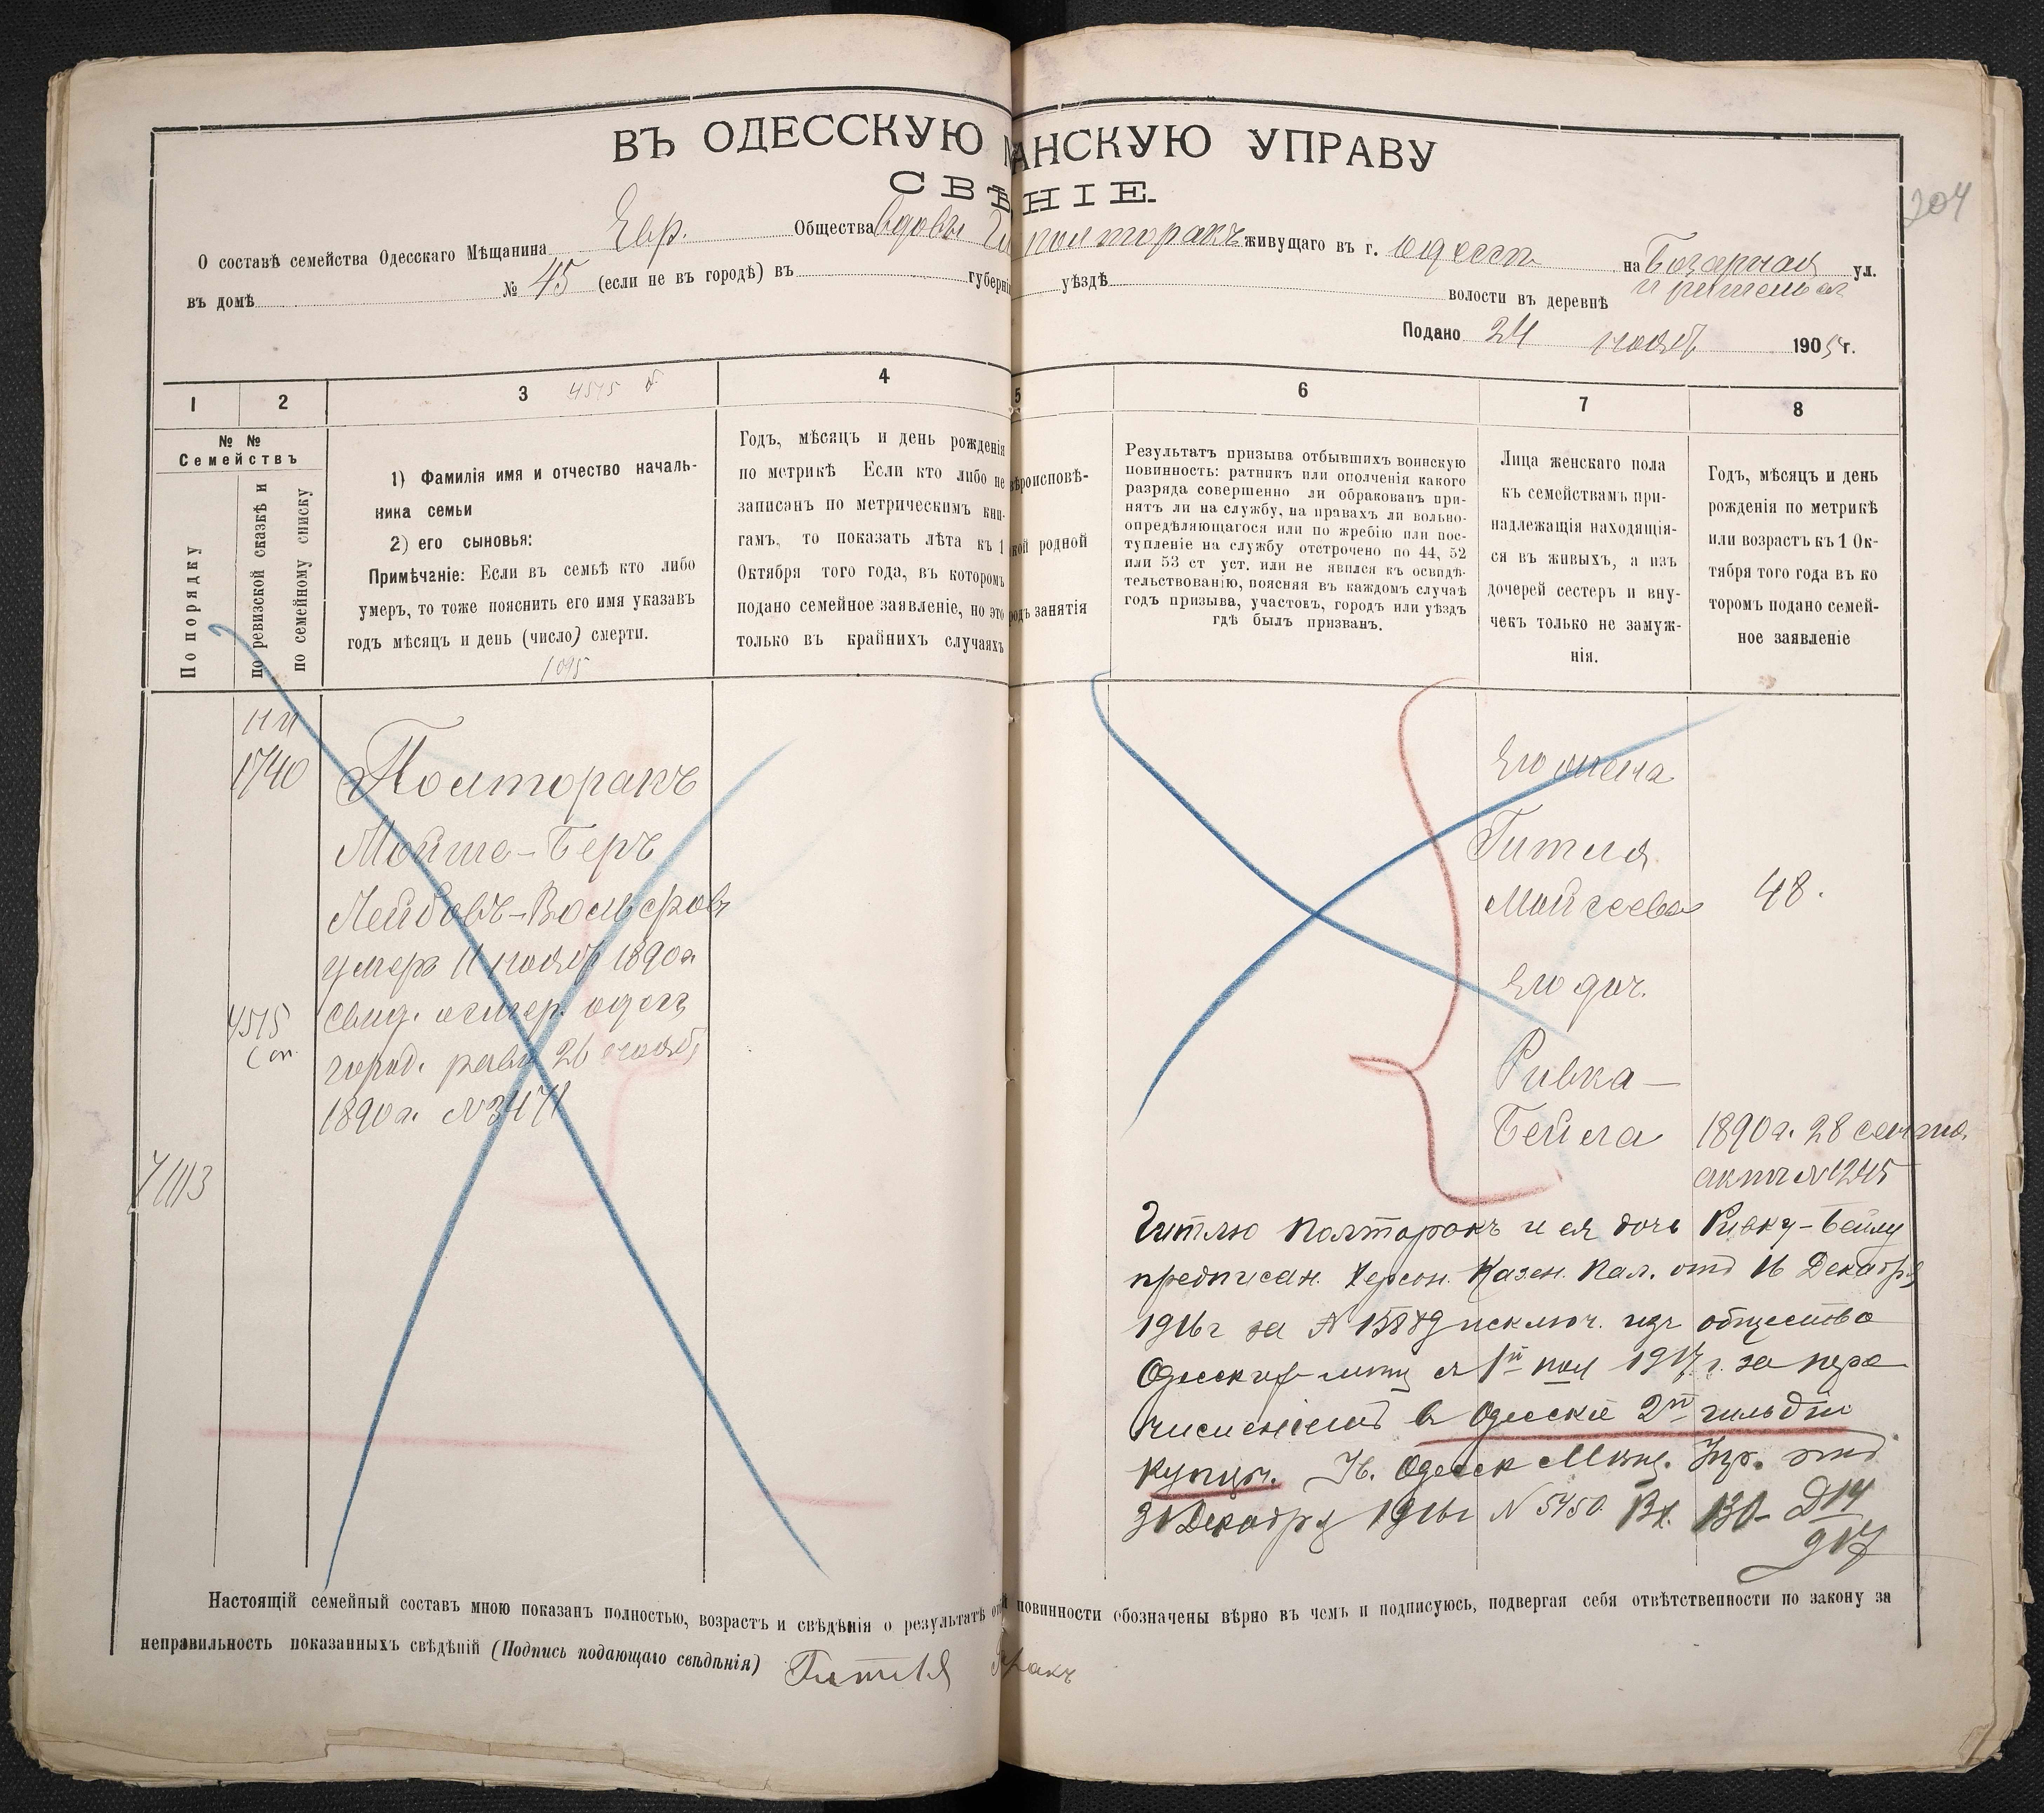 ВЪ ОДЕССКУЮ М АНСКУЮ УПРАВУ
СВѢ НІЕ.
204
О составѣ семейства Одесскаго Мѣщанина Евр. Общества вдовы Ги полторакъ живущаго въ г. Одессѣ на Базарная ул.
въ домѣ № 45 (если не въ городѣ) въ губерні уѣздѣ волости въ деревнѣ
Подано 24 нояб. 1905 г.
1 2 3 4575 4 5 6 7 8
№ № Семействъ
По порядку
по ревизской сказкѣ и
по семейному списку
1) Фамилія имя и отчество началь-
ника семьи
2) его сыновья:
Примѣчаніе: Если въ семьѣ кто либо
умеръ, то тоже пояснить его имя указавъ
годъ мѣсяцъ и день (число) смерти.
1095
Годъ, мѣсяцъ и день рожденія
по метрикѣ Если кто либо не
записанъ по метрическимъ кни-
гамъ, то показать лѣта къ 1
Октября того года, въ которомъ
подано семейное заявленіе, но это
только въ крайнихъ случаяхъ
ѣроисповѣ-
кой родной
родъ занятія
Результатъ призыва отбывшихъ воинскую
повинность: ратникъ или ополченія какого
разряда совершенно ли обракованъ при-
нятъ ли на службу, на правахъ ли вольно-
опредѣляющагося или по жребію или пос-
тупленіе на службу отстрочено по 44, 52
или 53 ст уст. или не явился къ освидѣ-
тельствованію, поясняя въ каждомъ случаѣ
годъ призыва, участокъ, городъ или уѣздъ
гдѣ былъ призванъ.
Лица женскаго пола
къ семействамъ при-
надлежащія находящія-
ся въ живыхъ, а изъ
дочерей сестеръ и вну-
чекъ только не замуж-
нія.
Годъ, мѣсяцъ и день
рожденія по метрикѣ
или возрастъ къ 1 Ок-
тября того года въ ко
торомъ подано семей-
ное заявленіе
1740
Полторакъ
Мойше-Беръ
Лейбовъ-Вольфовъ
умеръ 11 нояб 1890 г.
свид. о смер. одес.
город. рав. 26 нояб.
1890 г. № 3471
4575
7113
Его жена
Гитля
Мойсеева
48.
Его доч.
Ривка-
Бейла
1890 г. 28 сентяб.
актъ № 1245
Гитлю Полторакъ и ея дочь Ривку-Бейлу
предписан. Херсон. Казен. Пал. отъ 16 Декабря
1916 г за № 15889 исключ. изъ общества
Одесских мѣщ с 1й пол 1917 г. за пере
числениемъ в Одесскіе 2й гильдіи
купцы. Ув. Одесск Мѣщ. Упр. отъ
31 Декабря 1916 г № 5450 Вх. 130 - Д 14
917
Настоящій семейный составъ мною показанъ полностью, возрастъ и свѣдѣнія о результатѣ от й повинности обозначены вѣрно въ чемъ и подписуюсь, подвергая себя отвѣтственности по закону за
неправильность показанныхъ свѣдѣній (Подпись подающаго свѣдѣнія) Гитля ракъ